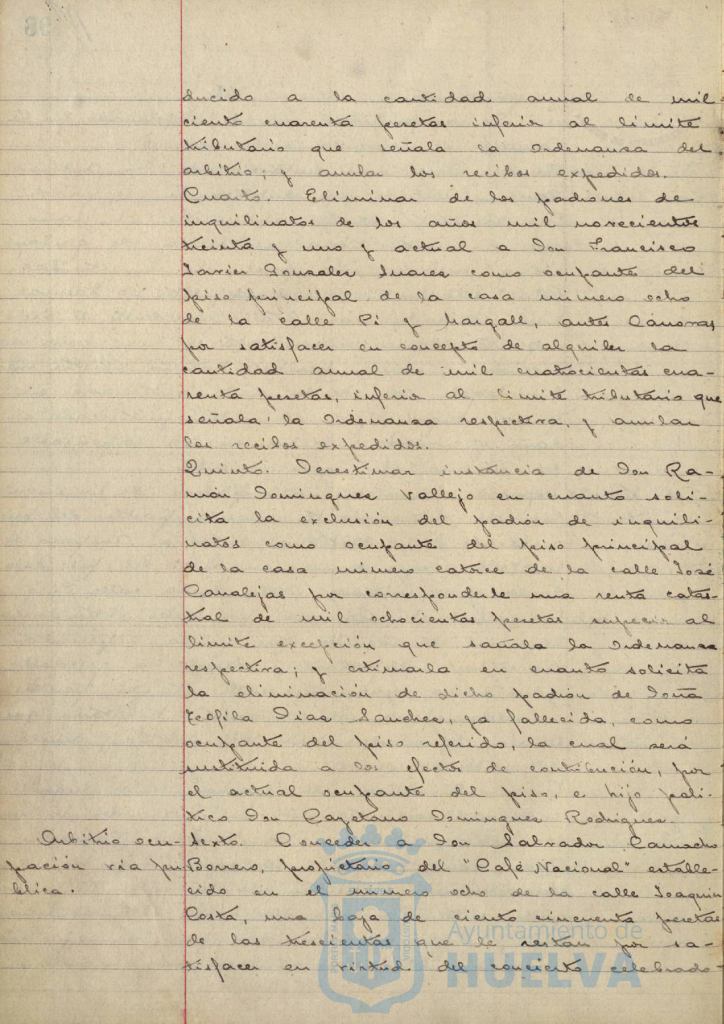 ducido a la cantidad anual de mil
ciento cuarenta pesetas inferior al límite
tributario que señala la Ordenanza del
arbitrio; y anular los recibos expedidos.
Cuarto. Eliminar de los padrones de
inquilinatos de los años mil novecientos
treinta y uno y actual a Don Francisco
Javier Gonzalez Suarez como ocupante del
piso principal de la casa número ocho
de la calle Pi y Margall, antes Cánovas
por satisfacer en concepto de alquiler la
cantidad anual de mil cuatrocientas cua-
renta pesetas, inferior al límite tributario que
señala la Ordenanza respectiva, y anular
los recibos expedidos.
Quinto. Desestimar instancia de Don Ra-
món Dominguez Vallejo en cuanto soli-
cita la exclusión del padrón de inquili-
natos como ocupante del piso principal
de la casa número catorce de la calle José
Canalejas por corresponderle una renta catas-
tral de mil ochocientas pesetas superior al
límite excepción que señala la Ordenanza
respectiva; y estimarla en cuanto solicita
la eliminación de dicho padrón de Doña
Teofila Diaz Sanchez, ya fallecida, como
ocupante del piso referido, la cual será
sustituida a los efectos de contribución, por
el actual ocupante del piso, e hijo poli-
tico Don Cayetano Dominguez Rodriguez.
Arbitrio ocu-
pación vía pu-
blica.
Sexto. Conceder a Don Salvador Camacho
Borrero, propietario del "Café Nacional" estable-
cido en el número ocho de la calle Joaquin
Costa, una baja de ciento cincuenta pesetas
de las trescientas que le restan por sa-
tisfacer en virtud del concierto celebrado
Ayuntamiento de
HUELVA